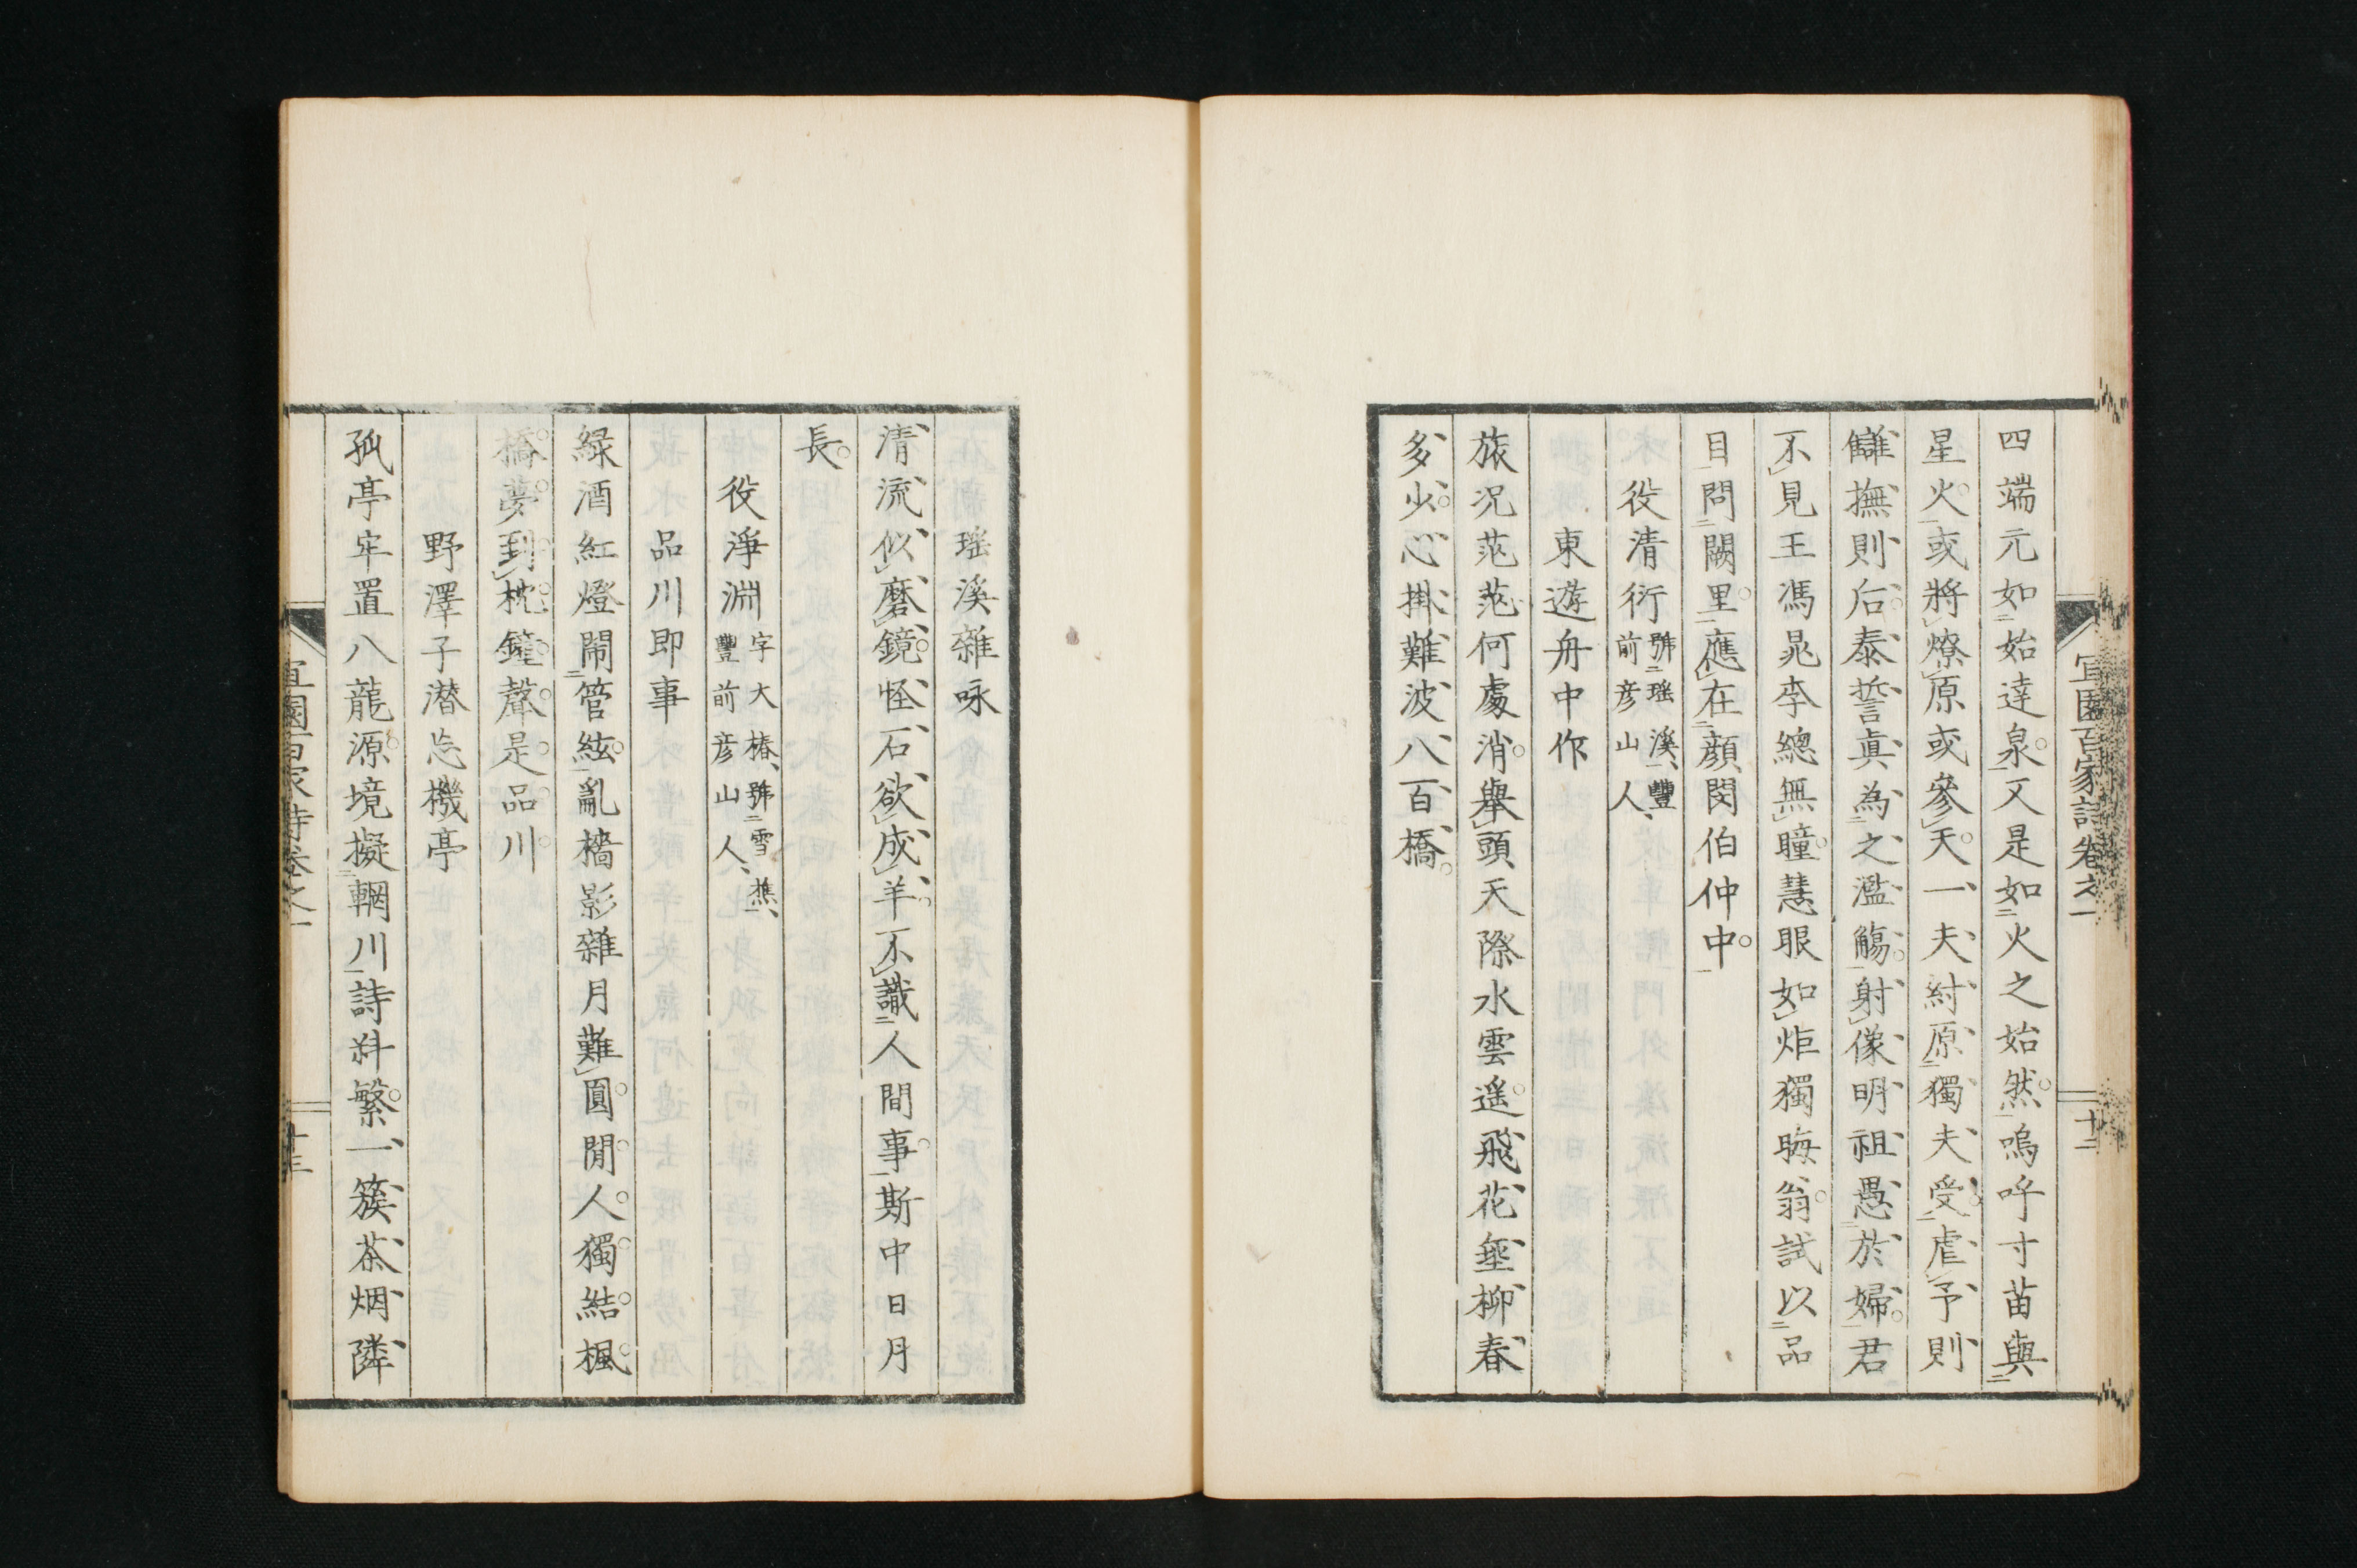 宜園百家詩卷之一
十二
四端元如始達泉又是如火之始然嗚呼寸苗與
星火或將燎原或參天一夫紂原獨夫受虐予則
讎撫則后泰誓真為之濫觴射像明祖愚於婦君
不見王馮晁李總無瞳慧眼如炬獨晦翁試以品
目問闕里應在顏閔伯仲中
役清衍號瑤溪豐前彦山人
東遊舟中作
旅況茫茫何處消舉頭天際水雲遙飛花垂柳春
多少心掛難波八百橋
瑤溪雜咏
清流似磨鏡怪石欲成羊不識人間事斯中日月
長
役淨淵字大椿號雪樵豐前彦山人
品川即事
綠酒紅燈鬧管絃亂檣影雜月難圓閒人獨結楓
橋夢到枕鐘聲是品川
野澤子潜忘機亭
孤亭牢置八龍源境擬輞川詩料繁一簇茶烟隣
宜園百家詩卷之一
十三